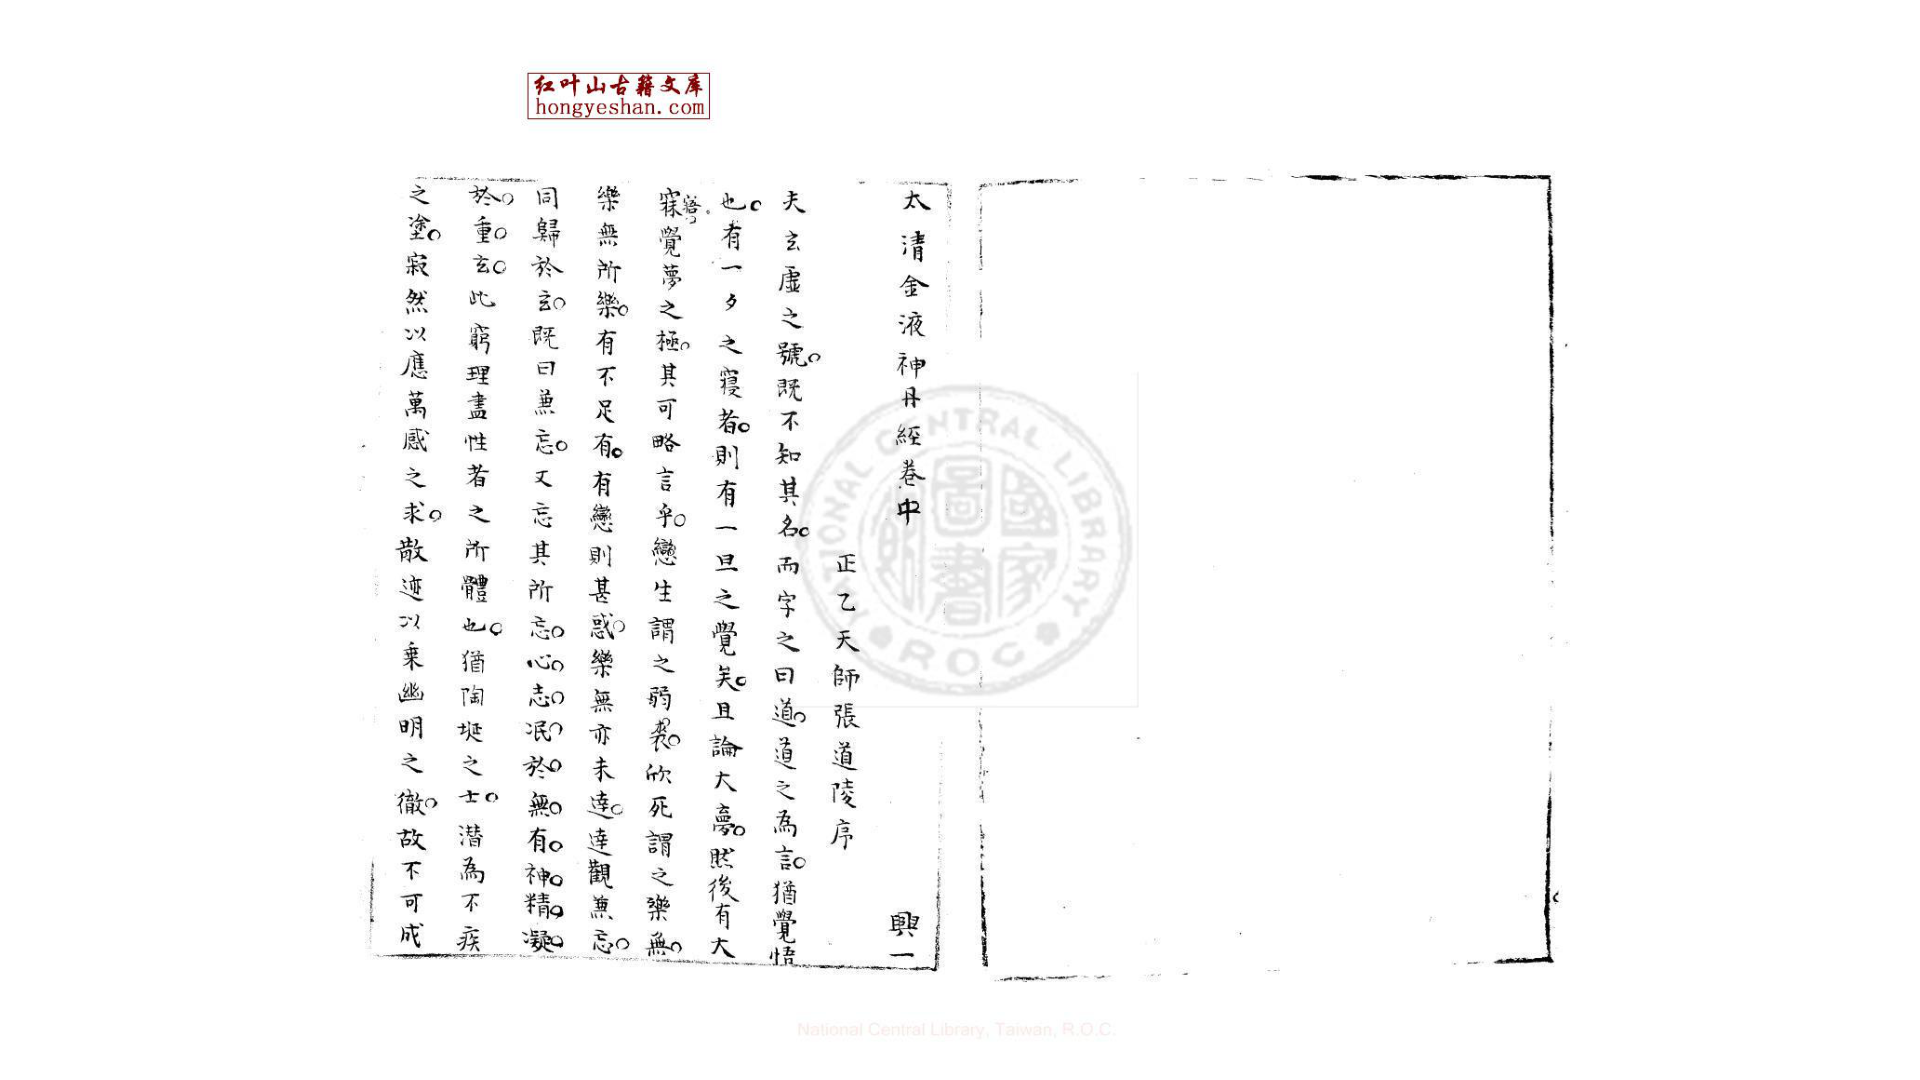 红叶山古籍文库
hongyeshan.com
太清金液神丹經卷中
興一
正乙天師張道陵序
夫玄虛之號。既不知其名。而字之曰道。道之為言。猶覺悟
也。有一夕之寢者。則有一旦之覺矣。且論大夢。然後有大
寐寤。覺夢之極。其可略言乎。戀生謂之弱喪。欣死謂之樂無。
樂無所樂。有不足有。有戀則甚惑。樂無亦未達。達觀兼忘。
同歸於玄。既曰兼忘。又忘其所忘。心。志。泯。於。無。有。神。精。凝。
於。重。玄。此窮理盡性者之所體也。猶陶埏之士。潛為不疾
之塗。寂然以應萬感之求。散迹以乗幽明之徹。故不可成
NATIONAL CENTRAL LIBRARY
ROC
國家圖書館
National Central Library, Taiwan, R.O.C.